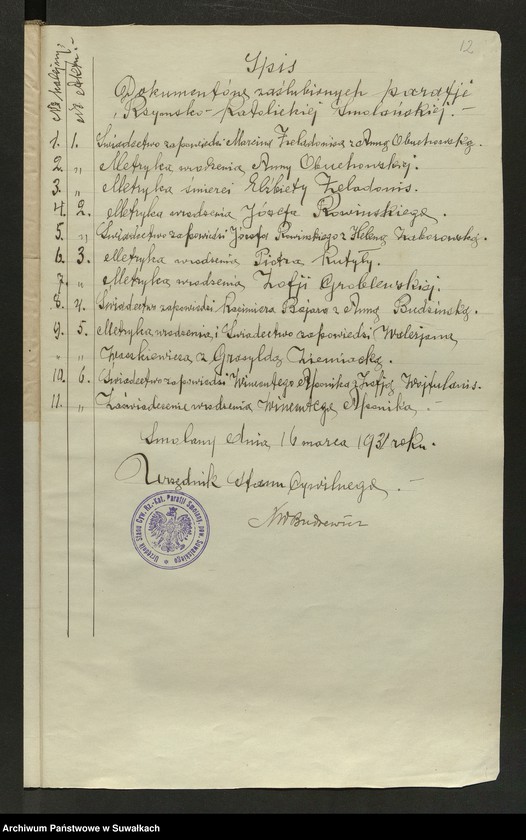 12
Spis
Dokumentów zaślubionych parafji
Rzymsko-Katolickiej Smolańskiej. -
No kolejny. No Aktu. -
1. 1. Świadectwo zapowiedzi Marcina Żeladonisa z Anną Obuchowską.
2. „ Metryka urodzenia Anny Obuchowskiej.
3. „ Metryka śmierci Elżbiety Żeladonis.
4. 2. Metryka urodzenia Józefa Rowinskiego.
5. „ Świadectwo zapowiedzi Józefa Rowinskiego z Heleną Zaborowską.
6. 3. Metryka urodzenia Piotra Kutyły.
7. „ Metryka urodzenia Zofji Groblewskiej.
8. 4. Świadectwo zapowiedzi Kazimierza Bejara z Anną Budzińską.
9. 5. Metryka urodzenia i Świadectwo zapowiedzi Walerjana
„ „ z Grasyldą Ziemiacką.
10. 6. Świadectwo zapowiedzi Wincentego z Zofją Wojtulanis.
11. „ Zaświadczenie urodzenia Wincentego -
Smolany dnia 16 marca 1931 roku.
Urzędnik Stanu Cywilnego. -
Urzędnik Stanu Cyw. Rz.-Kat. Parafji Smolany, pow. Suwalskiego
Archiwum Państwowe w Suwałkach